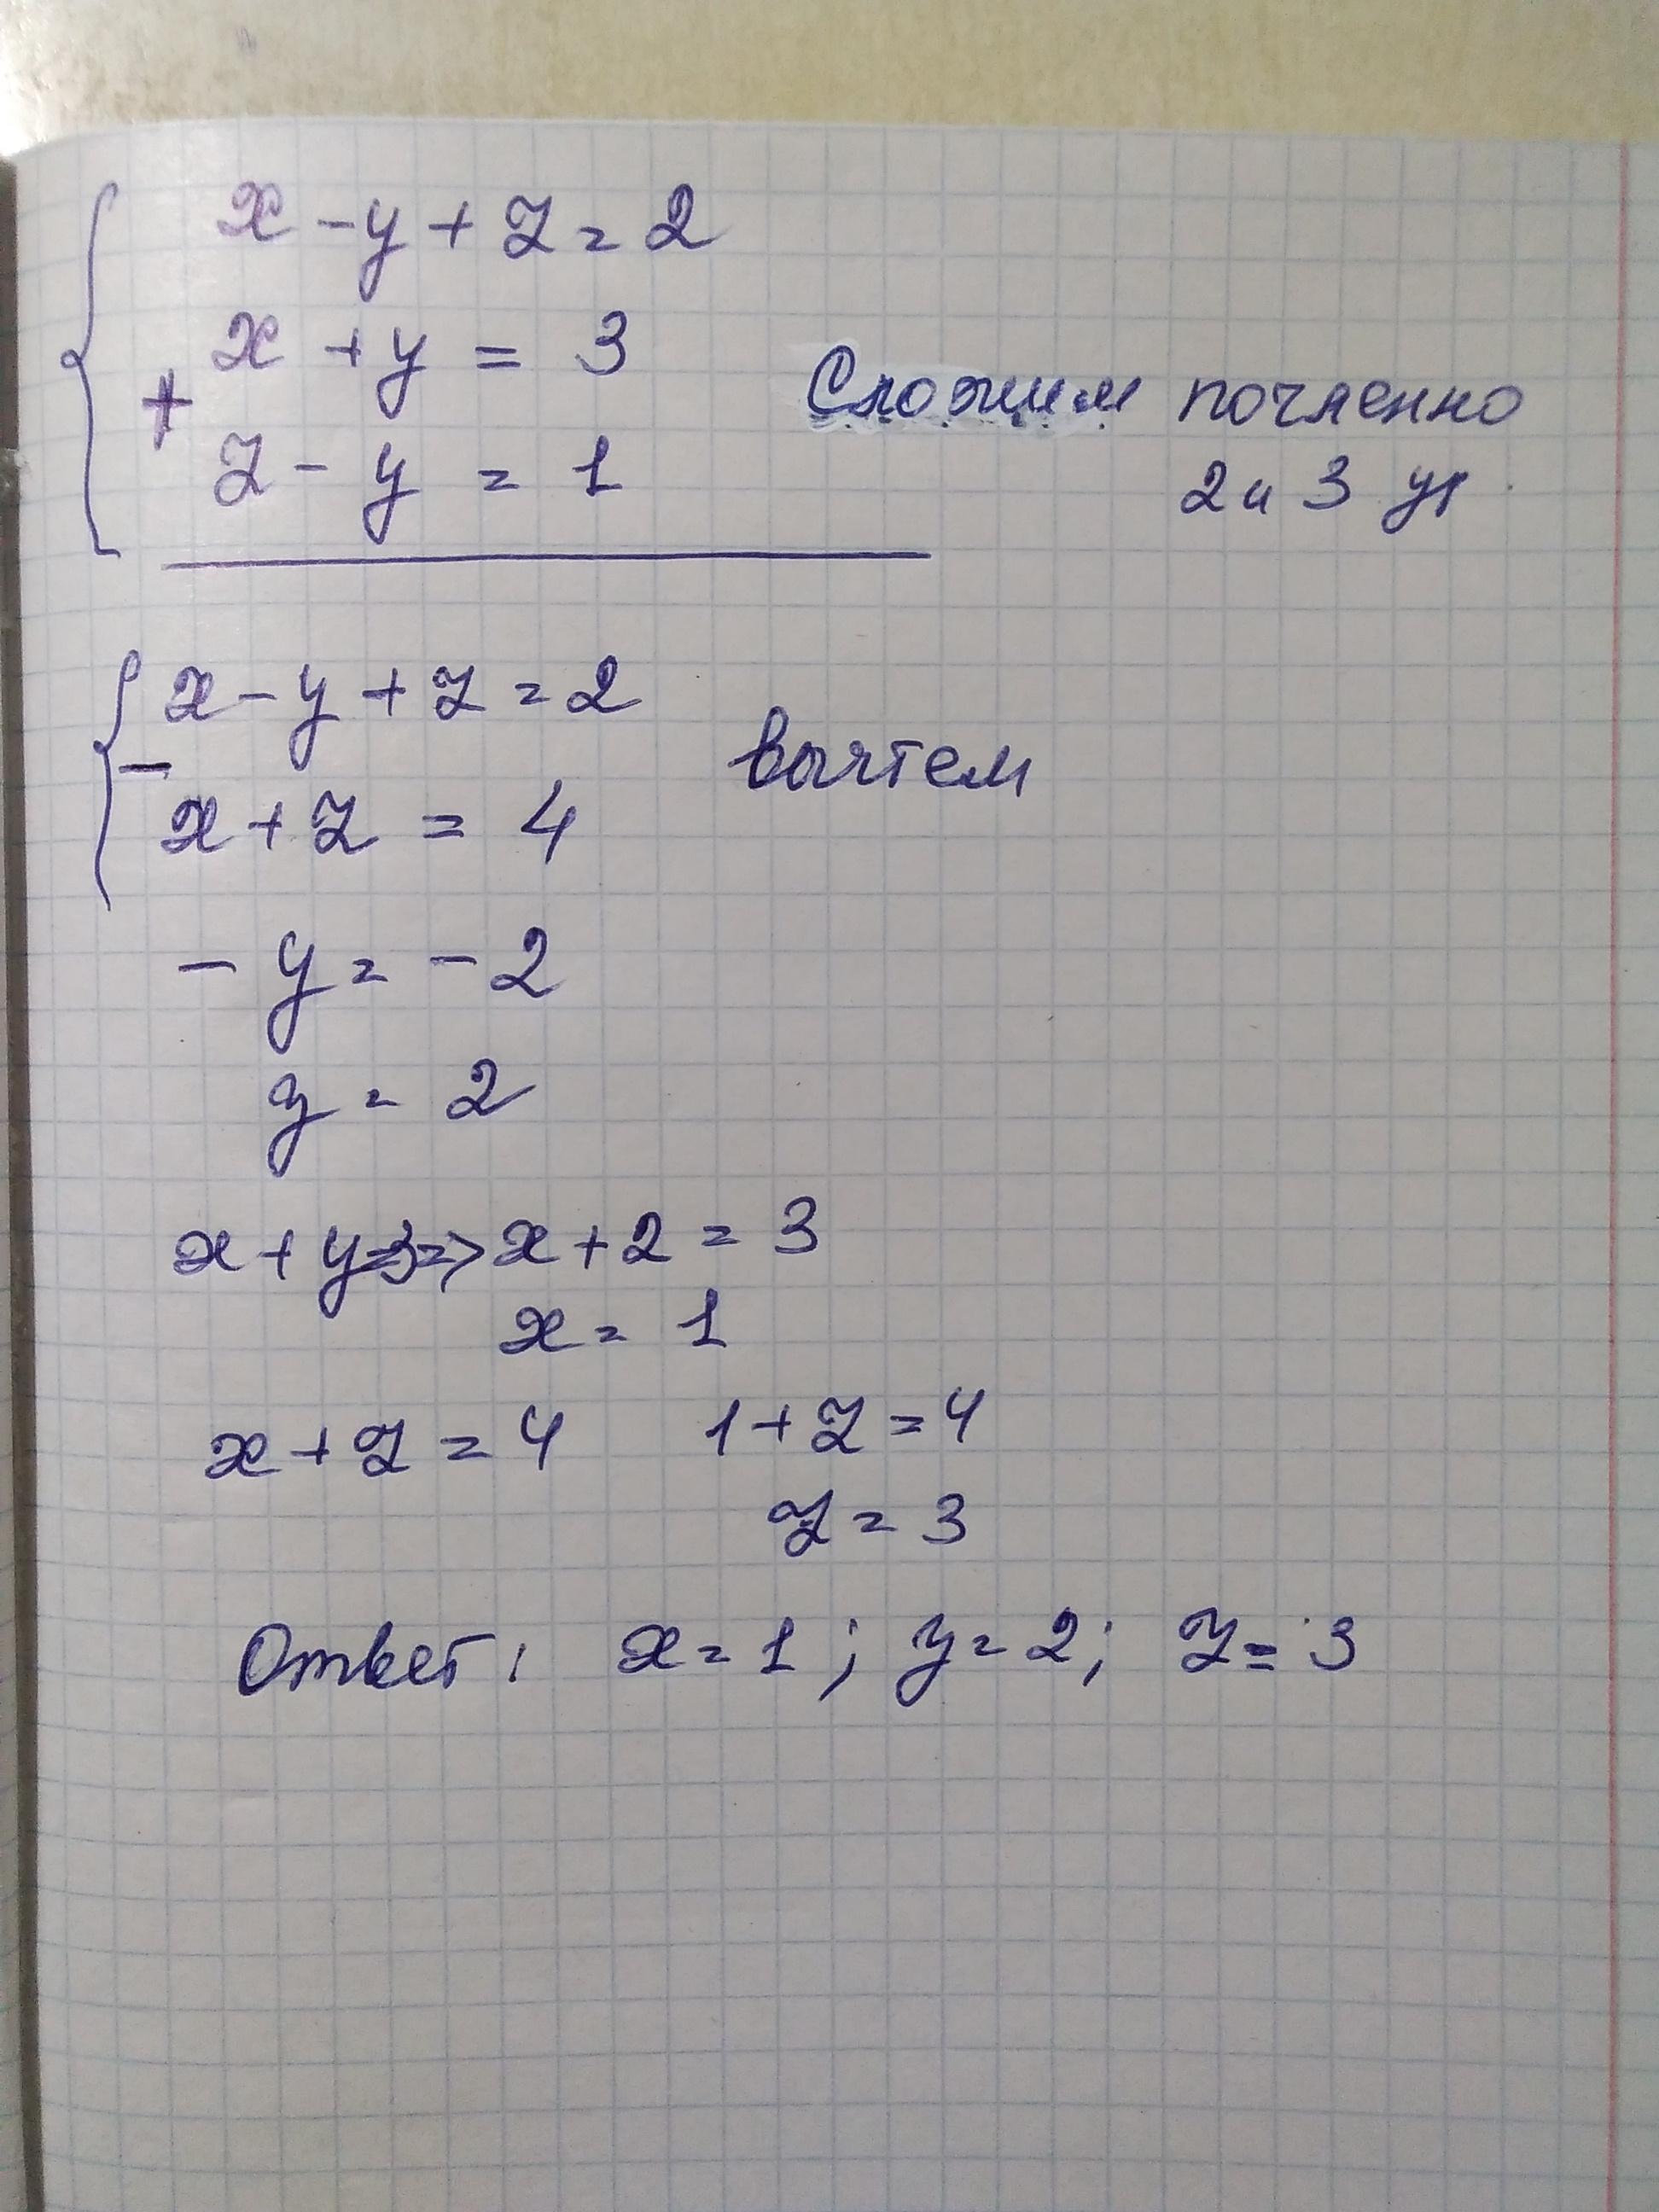 x - y + z = 2
x + y = 3
+
Сложим почленно
z - y = 1
2 и 3 ур.
x - y + z = 2
-
вычтем
x + z = 4
- y = - 2
y = 2
x + y = 3 => x + 2 = 3
x = 1
x + z = 4 1 + z = 4
z = 3
Ответ: x = 1; y = 2; z = 3